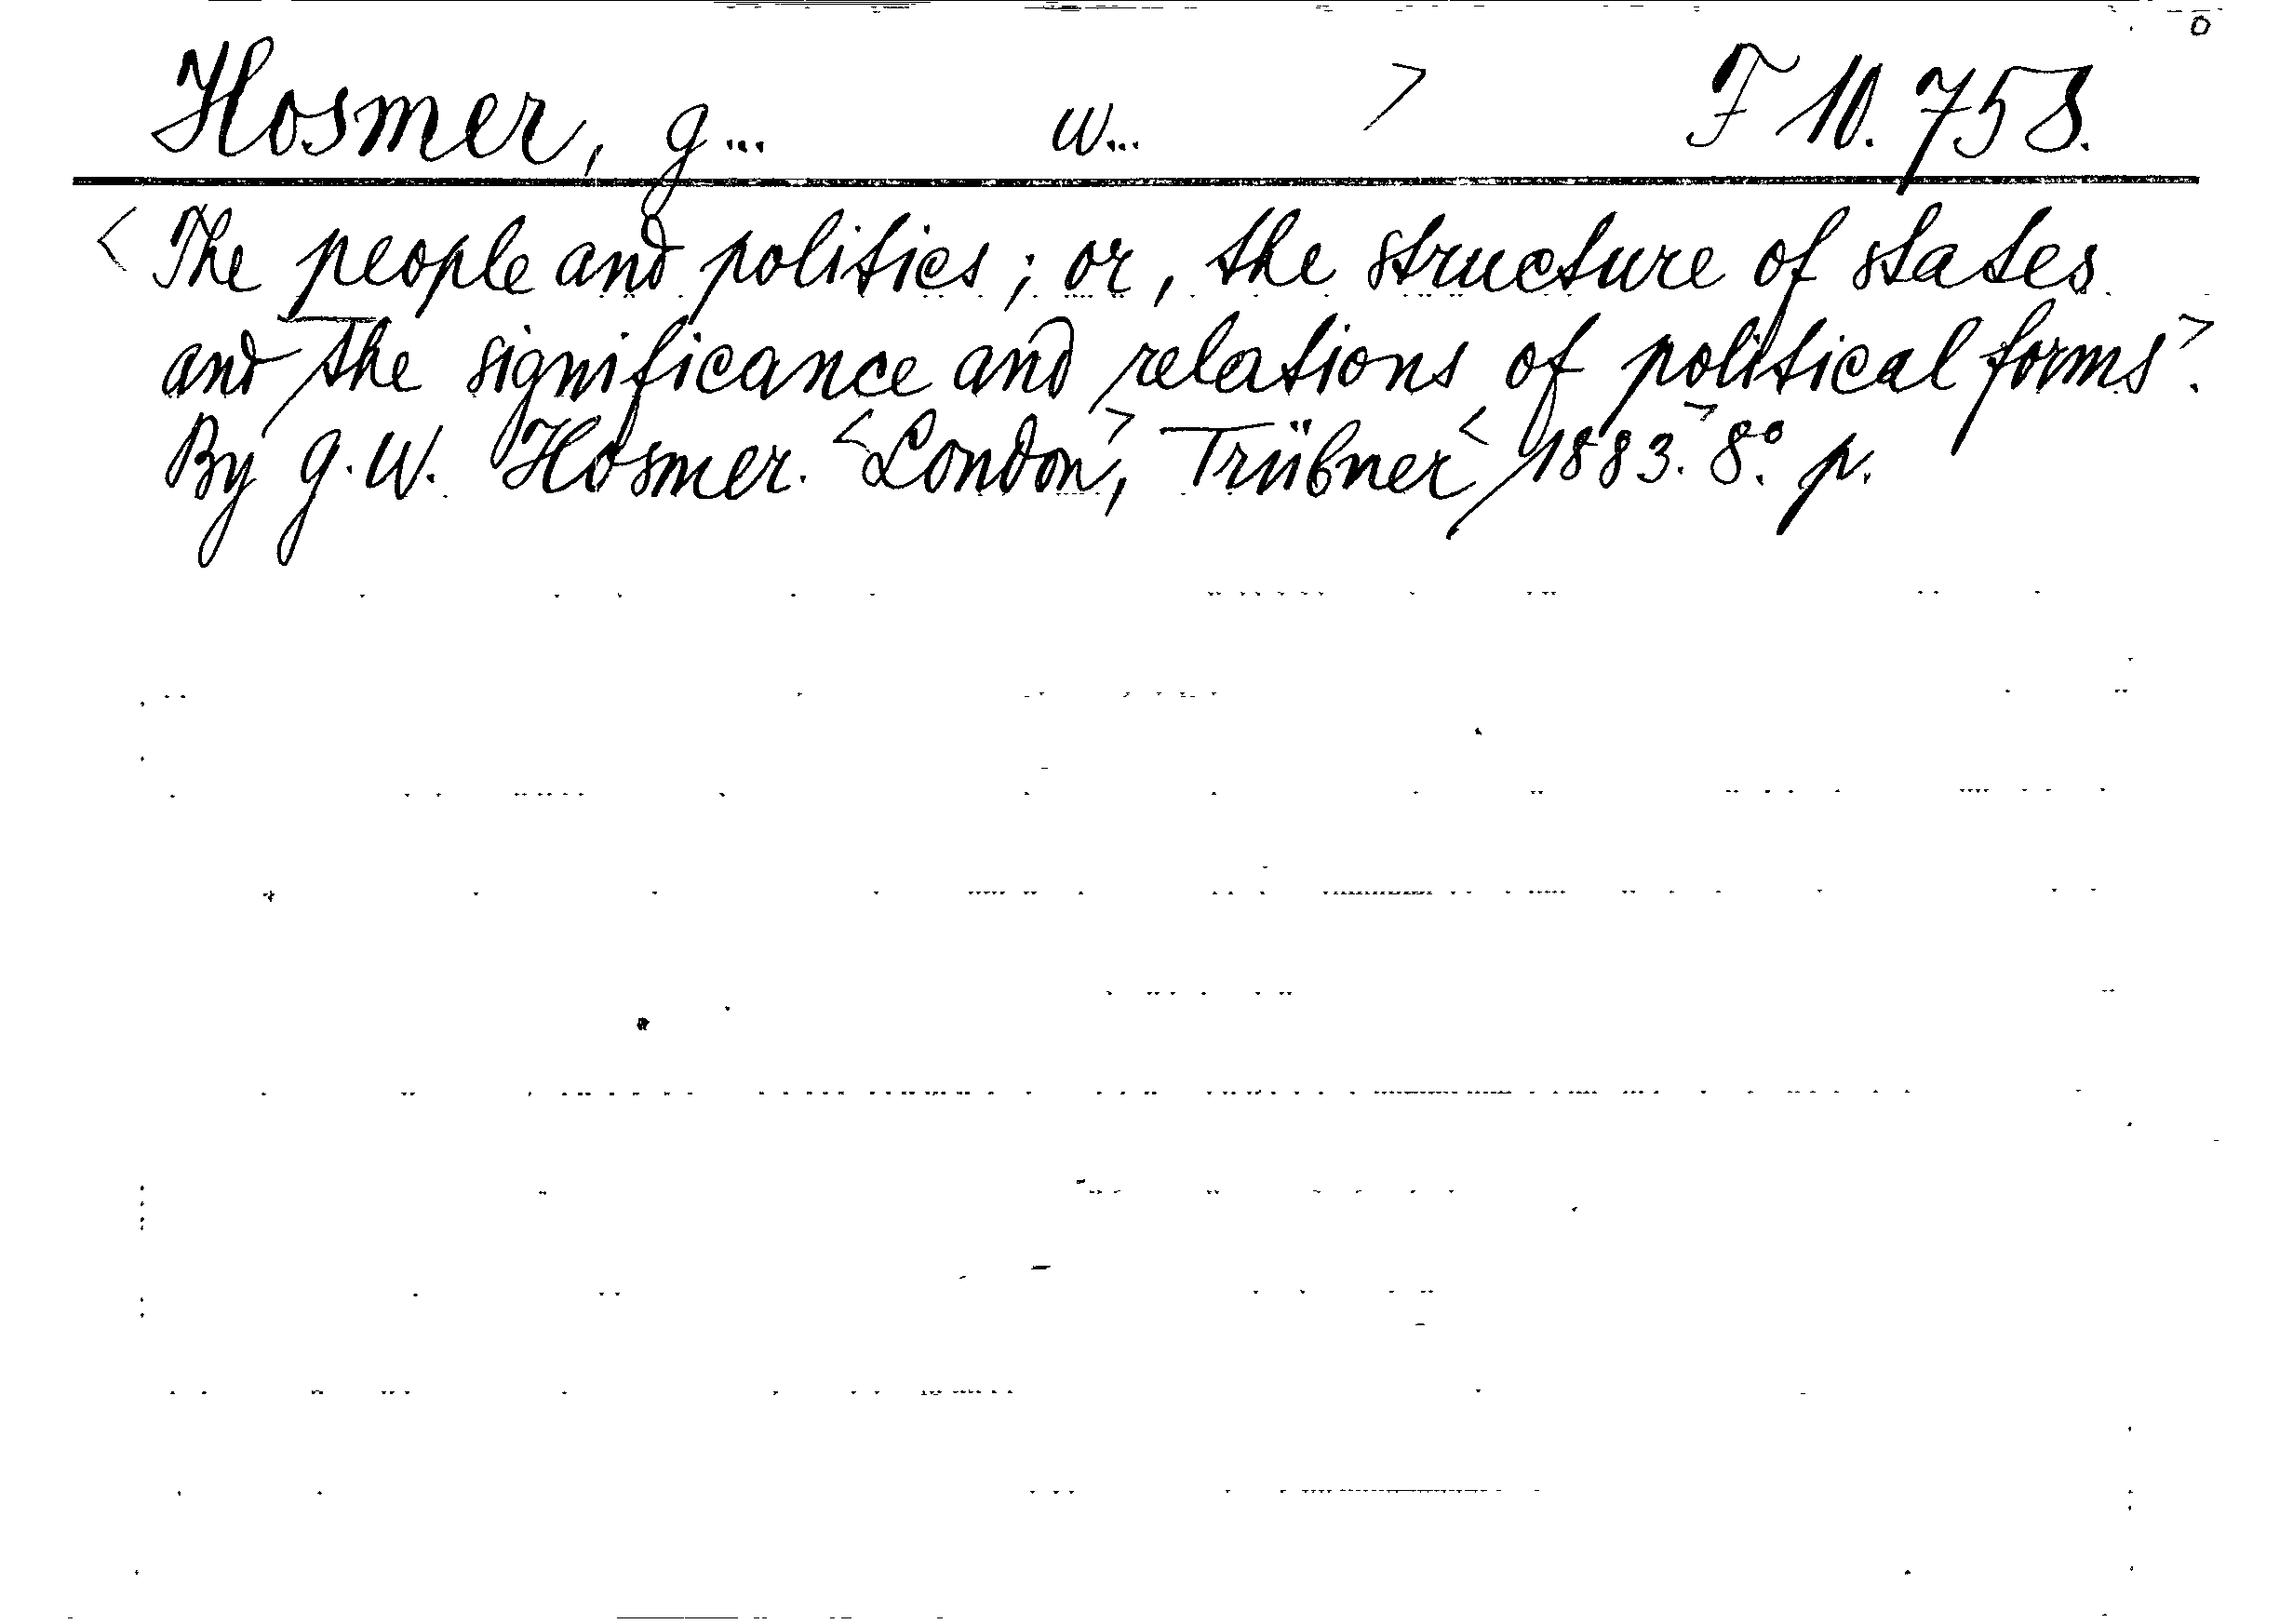 Hosmer, G... W... > F 10.758.
<The people and politics; or, the structure of states
and the significance and relations of political forms>.
By G.W. Hosmer. <London>, Trübner< 1883.> 8.° p.